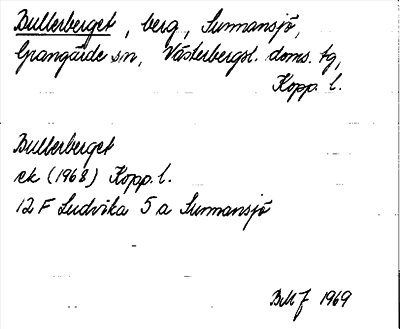 Bullerberget, berg, Sunnansjö,
Grangärde sn, Västerbergsl. doms. tg,
Kopp. l.
Bullerberget
ek (1968) Kopp. l.
12 F Ludvika 5 a Sunnansjö
1969